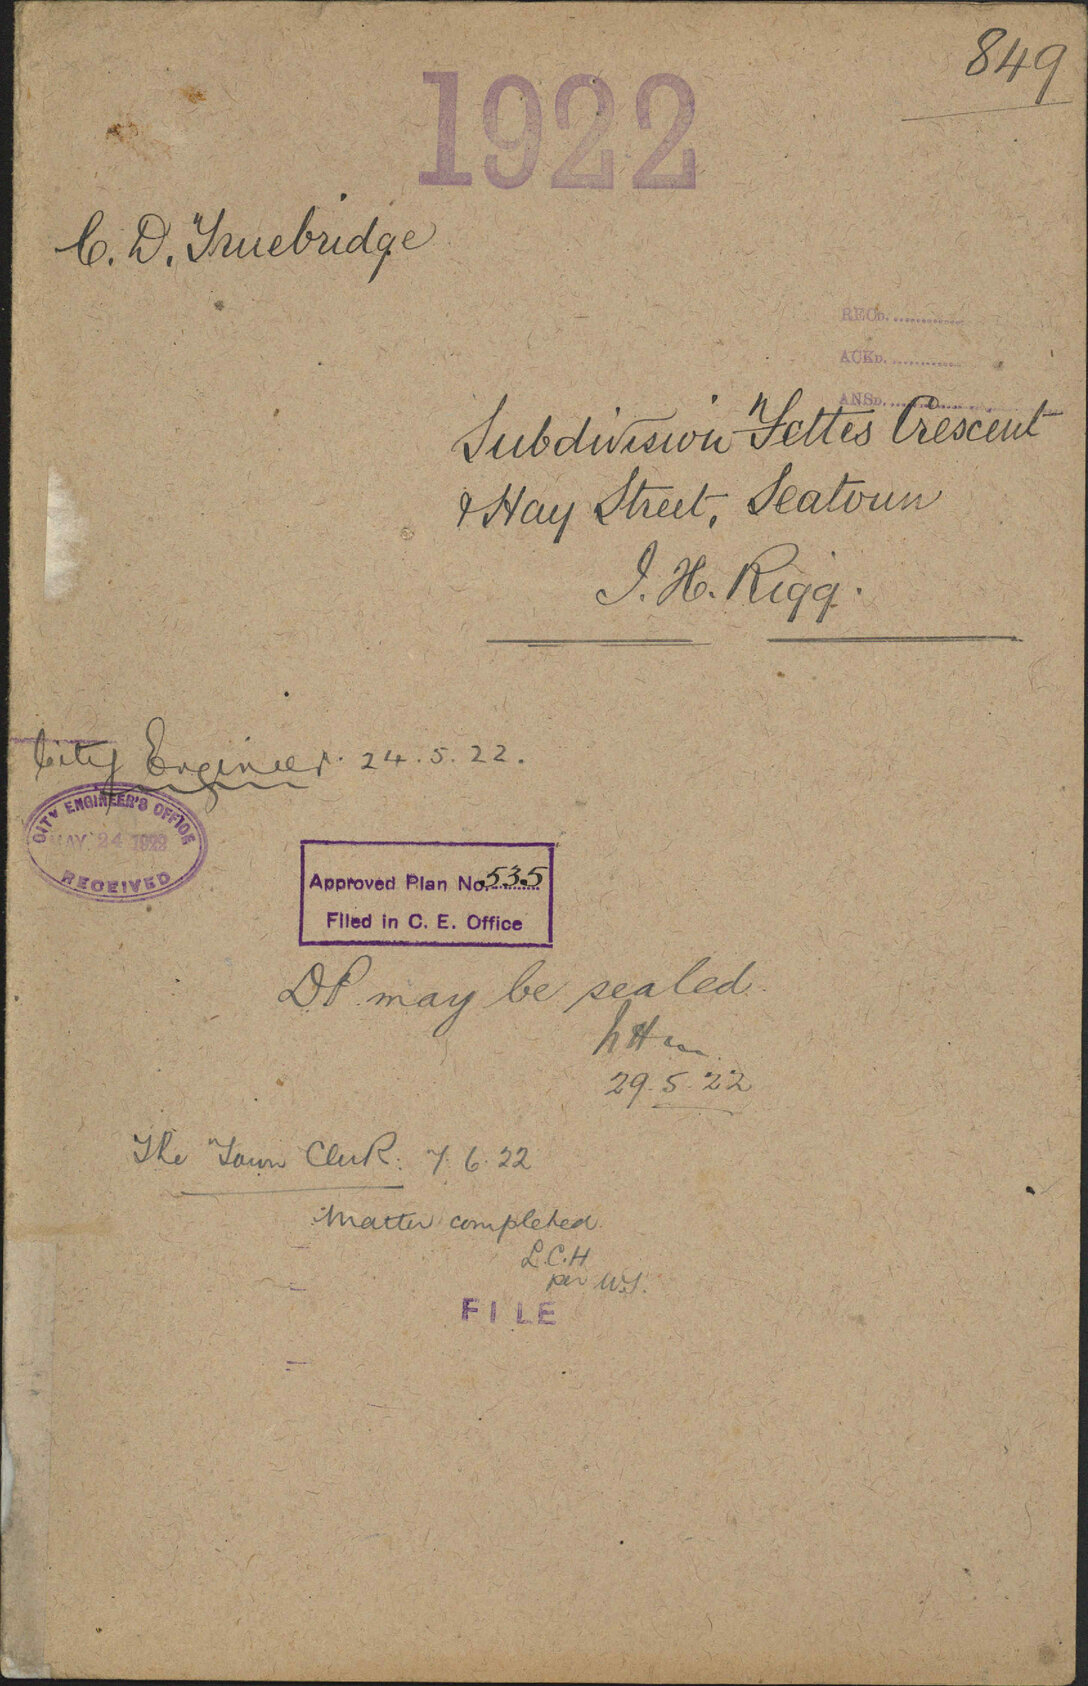 849
1922
C. D. Truebridge
RECD.
ACKD.
ANSD.
Subdivision Fettes Crescent
& Hay Street, Seatoun
J. H. Rigg.
City Engineer. 24.5.22.
CITY ENGINEER'S OFFICE
MAY 24 1922
RECEIVED
Approved Plan No. 535
Filed in C. E. Office
DP. may be sealed.
29.5.22
The Town Clerk. 7.6.22
Matter completed.
L.C.H
per W.S.
FILE